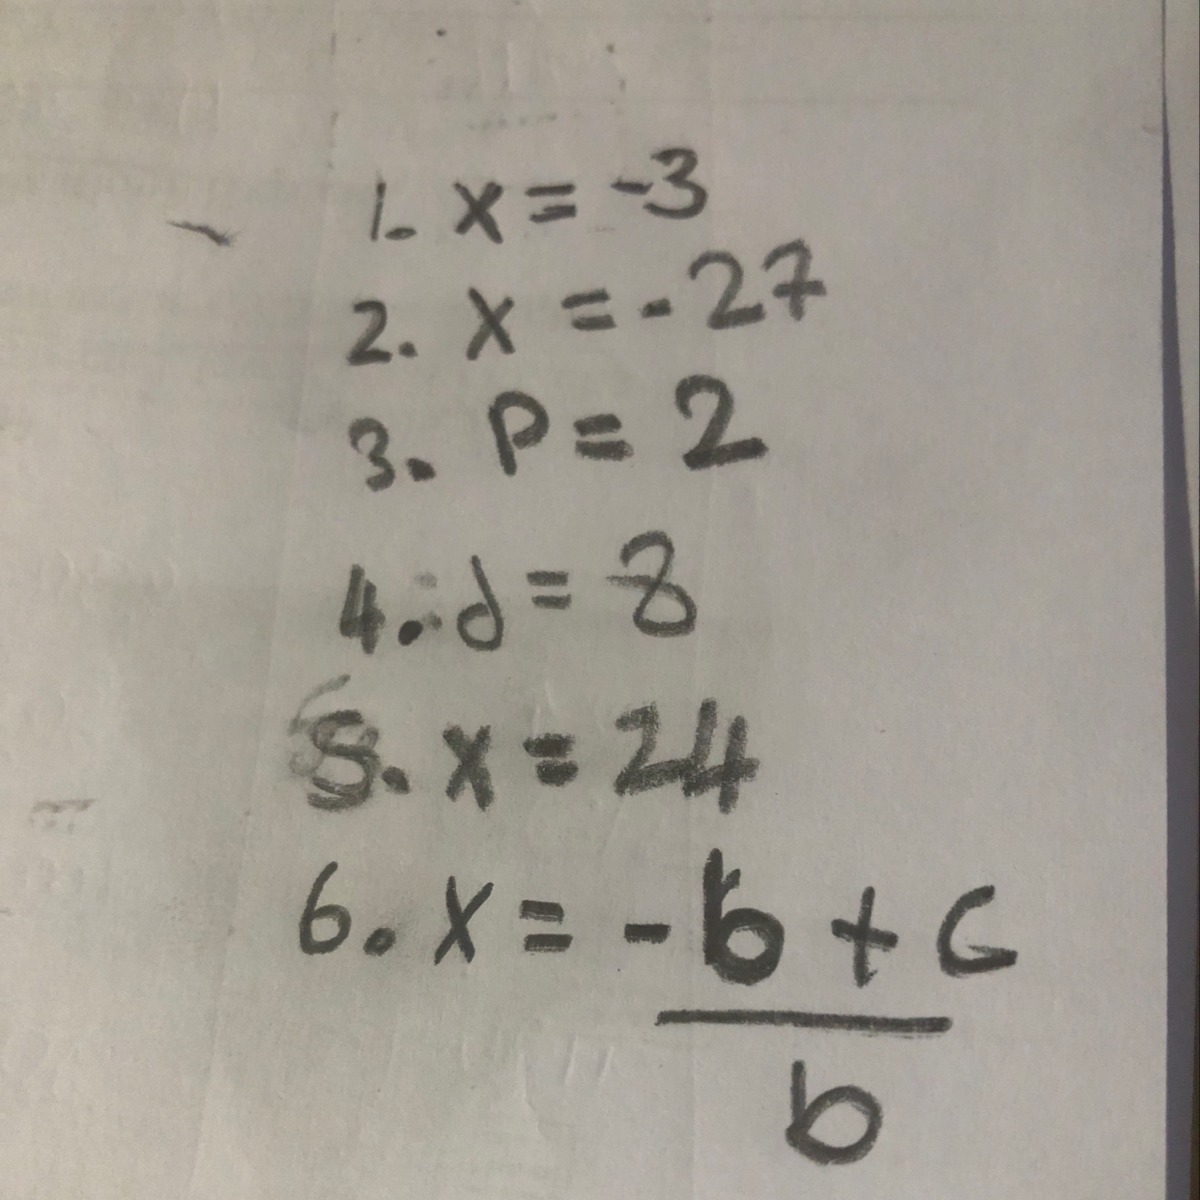 1. x = -3
2. x = -27
3. P = 2
4. d = 8
5. x = 24
6. x = -b + c
b